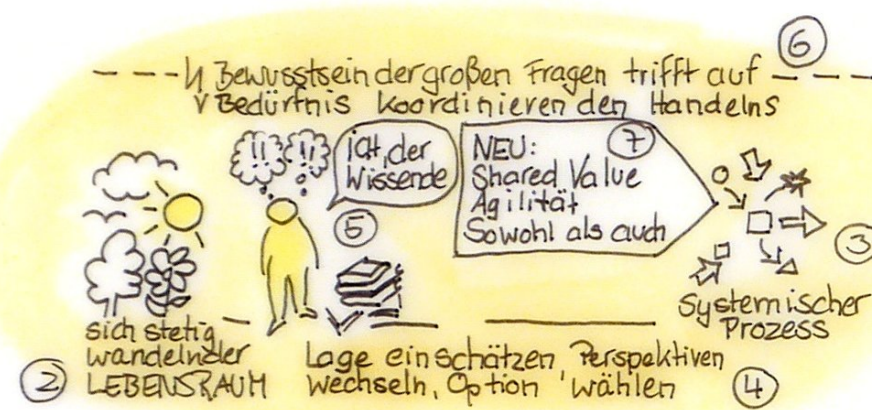 6
Bewusstsein der großen Fragen trifft auf
Bedürfnis koordinierenden Handelns
!! !!
ich, der
Wissende
5
NEU: 7
Shared Value
Agilität
Sowohl als auch
3
Systemischer
Prozess
sich stetig
wandelnder
LEBENSRAUM
2
Lage einschätzen Perspektiven
wechseln, Option wählen
4